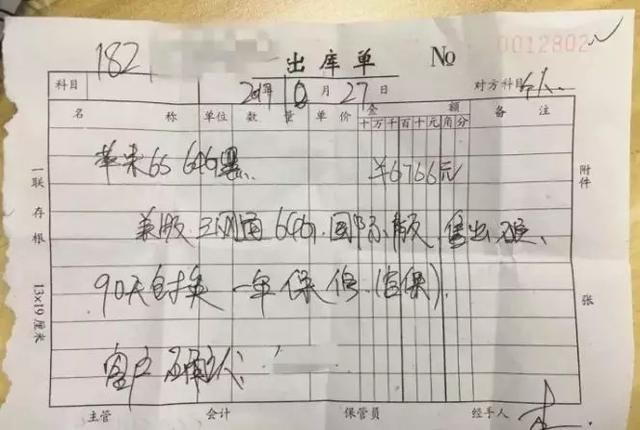 182
出库单 No 0012802
科目 2015年10月27日 对方科目
名称 单位 数量 单价 金额 备注
十万千百十元角分
苹果6S 64G黑 ¥6766元
美版三网通64G国际版售出
90天包换一年保修(官保)
客户
主管 会计 保管员 经手人
一联存根 13×19厘米
附件 张